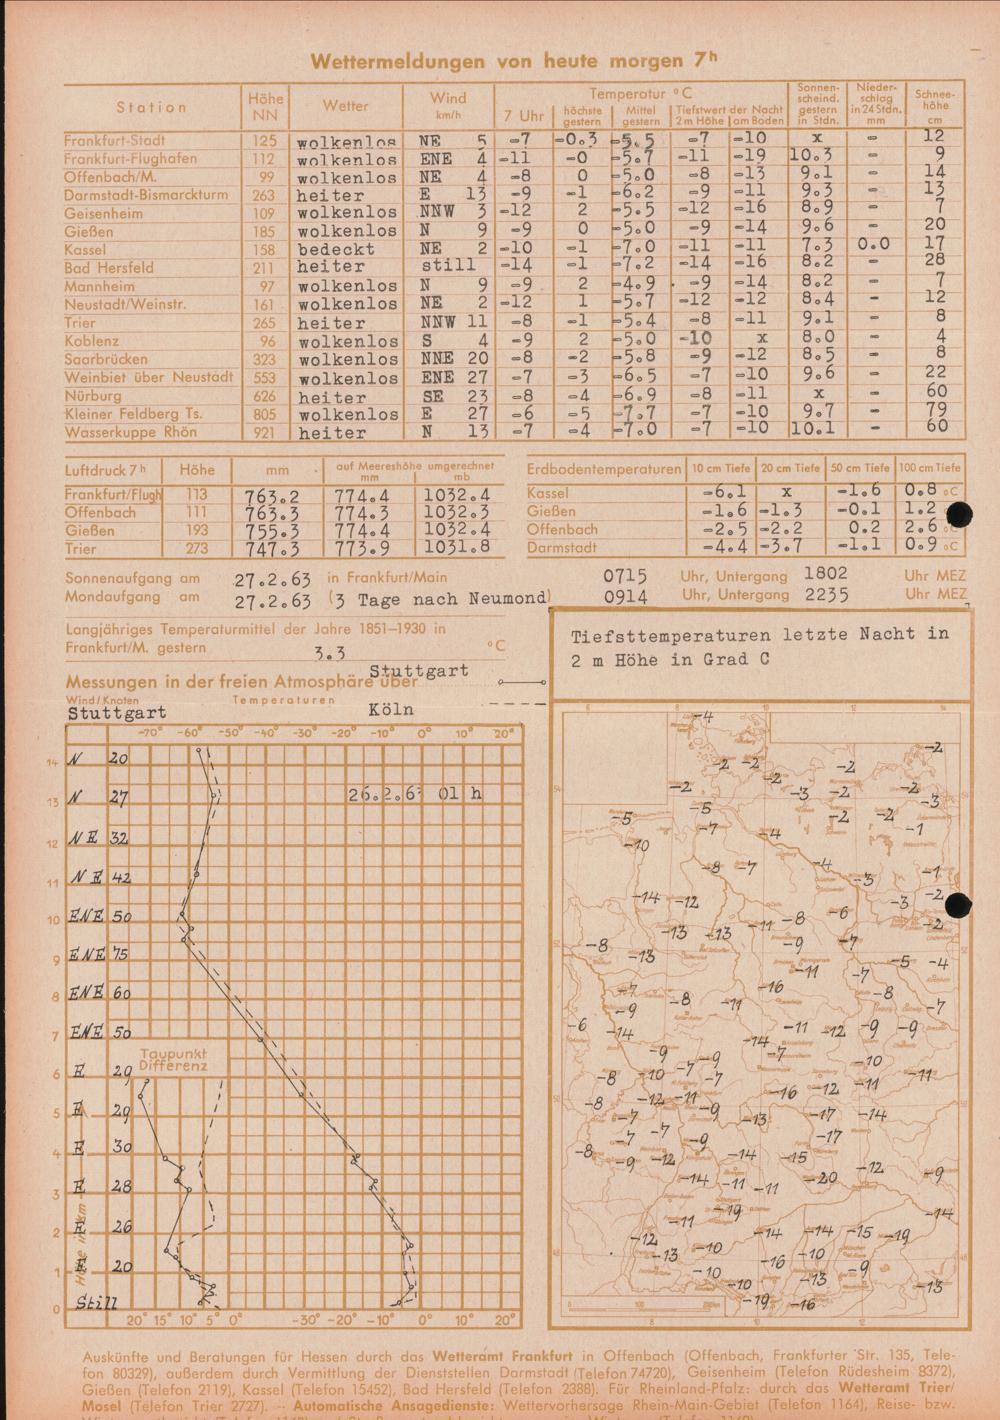 Wettermeldungen von heute morgen 7h
Station Höhe NN Wetter Wind km/h Temperatur °C 7 Uhr höchste gestern Mittel gestern Tiefstwert der Nacht 2 m Höhe am Boden Sonnen-scheind. gestern in Stdn. Nieder-schlag in 24 Stdn. mm Schnee-höhe cm
Frankfurt-Stadt 125 wolkenlos NE 5 -7 -0.3 -5.5 -7 -10 x - 12
Frankfurt-Flughafen 112 wolkenlos ENE 4 -11 -0 -5.7 -11 -19 10.3 - 9
Offenbach/M. 99 wolkenlos NE 4 -8 0 -5.0 -8 -13 9.1 - 14
Darmstadt-Bismarckturm 263 heiter E 13 -9 -1 -6.2 -9 -11 9.3 - 13
Geisenheim 109 wolkenlos NNW 3 -12 2 -5.5 -12 -16 8.9 - 7
Gießen 185 wolkenlos N 9 -9 0 -5.0 -9 -14 9.6 - 20
Kassel 158 bedeckt NE 2 -10 -1 -7.0 -11 -11 7.3 0.0 17
Bad Hersfeld 211 heiter still -14 -1 -7.2 -14 -16 8.2 - 28
Mannheim 97 wolkenlos N 9 -9 2 -4.9 -9 -14 8.2 - 7
Neustadt/Weinstr. 161 wolkenlos NE 2 -12 1 -5.7 -12 -12 8.4 - 12
Trier 265 heiter NNW 11 -8 -1 -5.4 -8 -11 9.1 - 8
Koblenz 96 wolkenlos S 4 -9 2 -5.0 -10 x 8.0 - 4
Saarbrücken 323 wolkenlos NNE 20 -8 -2 -5.8 -9 -12 8.5 - 8
Weinbiet über Neustadt 553 wolkenlos ENE 27 -7 -3 -6.5 -7 -10 9.6 - 22
Nürburg 626 heiter SE 23 -8 -4 -6.9 -8 -11 x - 60
Kleiner Feldberg Ts. 805 wolkenlos E 27 -6 -5 -7.7 -7 -10 9.7 - 79
Wasserkuppe Rhön 921 heiter N 13 -7 -4 -7.0 -7 -10 10.1 - 60
Luftdruck 7h Höhe mm auf Meereshöhe umgerechnet mm mb
Frankfurt/Flugh 113 763.2 774.4 1032.4
Offenbach 111 763.3 774.3 1032.3
Gießen 193 755.3 774.4 1032.4
Trier 273 747.3 773.9 1031.8
Erdbodentemperaturen 10 cm Tiefe 20 cm Tiefe 50 cm Tiefe 100 cm Tiefe
Kassel -6.1 x -1.6 0.8 °C
Gießen -1.6 -1.3 -0.1 1.2
Offenbach -2.5 -2.2 0.2 2.6 °C
Darmstadt -4.4 -3.7 -1.1 0.9 °C
Sonnenaufgang am 27.2.63 in Frankfurt/Main 0715 Uhr, Untergang 1802 Uhr MEZ
Mondaufgang am 27.2.63 (3 Tage nach Neumond) 0914 Uhr, Untergang 2235 Uhr MEZ
Langjähriges Temperaturmittel der Jahre 1851–1930 in
Frankfurt/M. gestern 3.3 °C
Messungen in der freien Atmosphäre über Stuttgart
Wind/Knoten Temperaturen
Stuttgart Köln
-70° -60° -50° -40° -30° -20° -10° 0° 10° 20°
14 N 20
13 N 27 26.2.63 01 h
12 NE 32
11 NE 42
10 ENE 50
9 ENE 75
8 ENE 60
7 ENE 50
Taupunkt
Differenz
E 29
5 E 29
4 E 30
3 E 28
2 E 26
1 E 20
0 Still
Höhe in km
20° 15° 10° 5° 0° -30° -20° -10° 0° 10° 20°
Tiefsttemperaturen letzte Nacht in
2 m Höhe in Grad C
-4
-2
-2 -2 -2 -2
-2 -3 -2 -2 -3
-5 -5 -2 -2
-7 -4 -1
-10
-8 -7 -4 -3 -1
-14 -12 -3 -2
-8 -6
-13 -13 -11 -2
-8 -9 -7
-13 -11 -5 -4
-7 -16 -7 -8
-8 -11 -7
-9
-6 -14 -11 -12 -9 -9
-14
-9 -9 -7 -10
-8 -10 -7 -7 -11
-16 -12 -11
-8 -12 -11 -9
-7 -13 -17 -14
-7 -7 -9 -17
-8 -9 -12 -14 -15
-12 -9
-14 -11 -11 -20
-19 -14
-11 -14 -14 -15 -19
-12 -10
-13 -16 -10 -9
-10 -10 -13 -13
-19 -16
Auskünfte und Beratungen für Hessen durch das Wetteramt Frankfurt in Offenbach (Offenbach, Frankfurter Str. 135, Tele-
fon 80329), außerdem durch Vermittlung der Dienststellen Darmstadt (Telefon 74720), Geisenheim (Telefon Rüdesheim 8372),
Gießen (Telefon 2119), Kassel (Telefon 15452), Bad Hersfeld (Telefon 2388). Für Rheinland-Pfalz: durch das Wetteramt Trier/
Mosel (Telefon Trier 2727). – Automatische Ansagedienste: Wettervorhersage Rhein-Main-Gebiet (Telefon 1164), Reise- bzw.